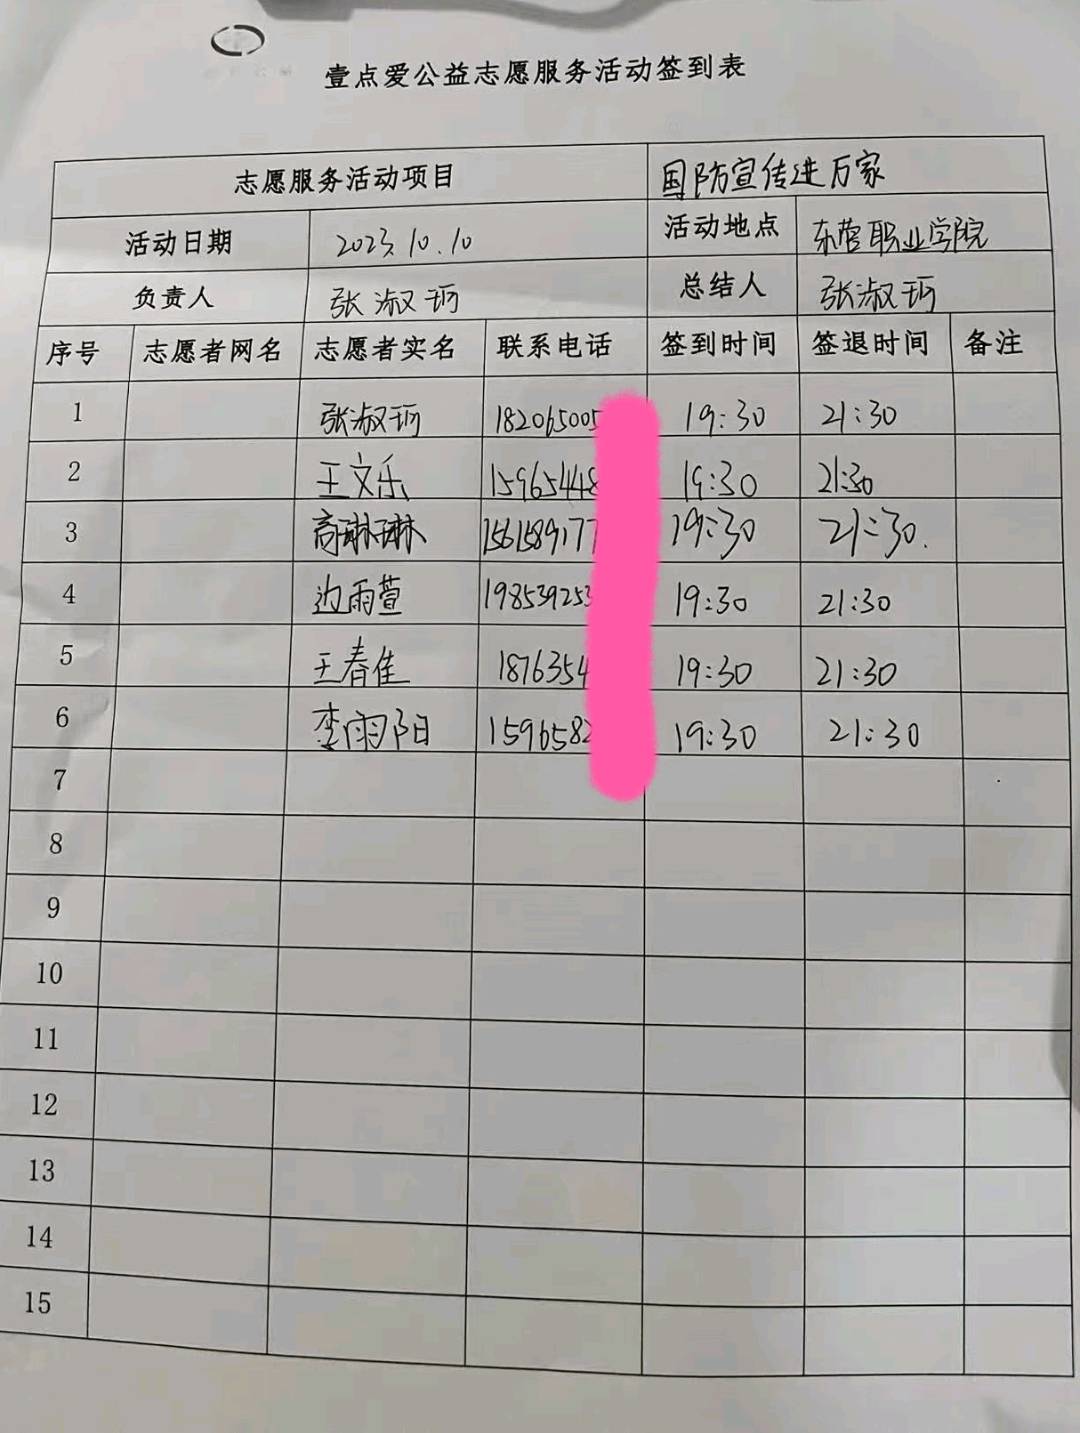 壹点爱公益志愿服务活动签到表
志愿服务活动项目 国防宣传进万家
活动日期 2023.10.10 活动地点 东营职业学院
负责人 张淑珂 总结人 张淑珂
序号 志愿者网名 志愿者实名 联系电话 签到时间 签退时间 备注
1 张淑珂 182065005 19:30 21:30
2 王文乐 15965448 19:30 21:30
3 高琳琳 1561589177 19:30 21:30.
4 边雨萱 198539253 19:30 21:30
5 王春佳 1876354 19:30 21:30
6 李雨阳 1596582 19:30 21:30
7
8
9
10
11
12
13
14
15